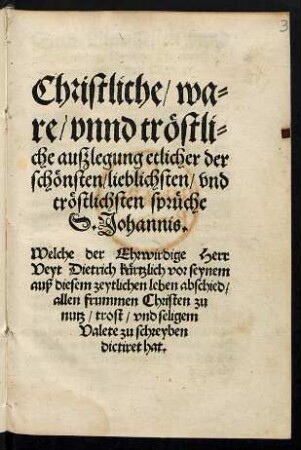 3
Christliche/ wa-
re/ vnnd tröstli-
che außlegung etlicher der
schönsten/ lieblichsten/ vnd
tröstlichsten sprüche
S. Johannis.
Welche der Ehrwirdige Herr
Veyt Dietrich kürtzlich vor seynem
auß diesem zeytlichen leben abschied/
allen frummen Christen zu
nutz/ trost/ vnd seligem
Valete zu schreyben
dictiret hat.